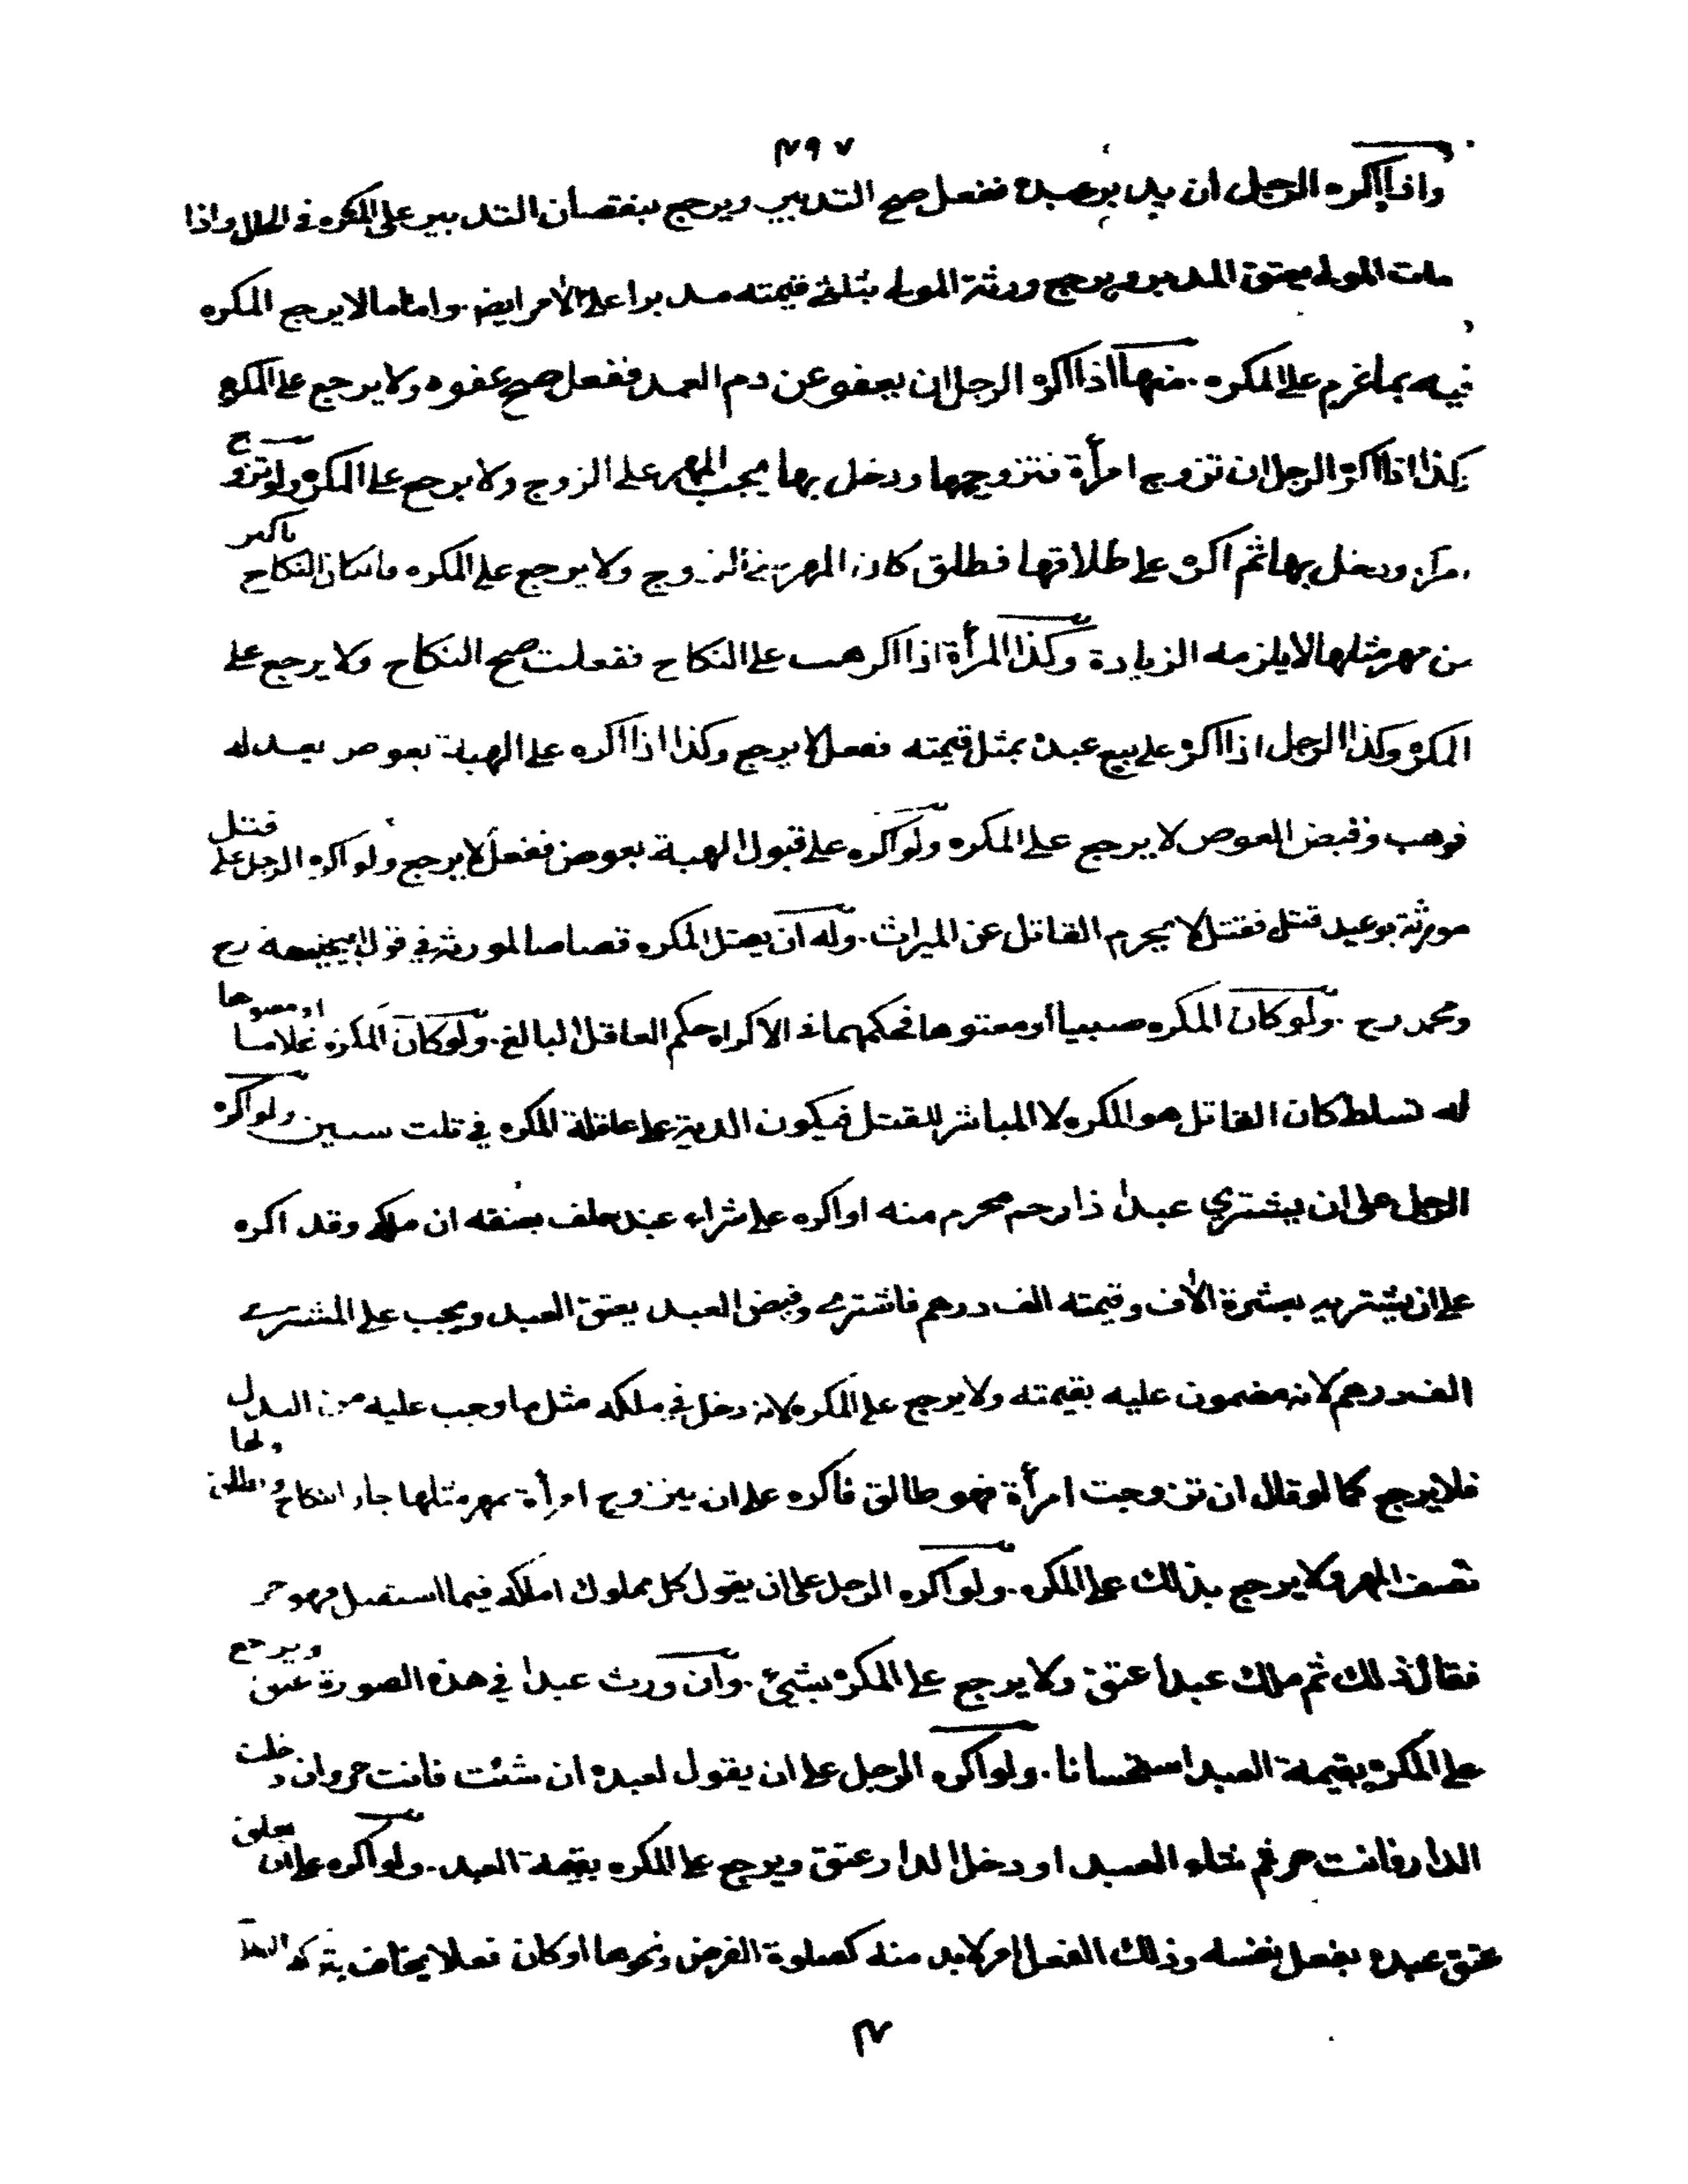 ٤٩٧
واذا اكره الرجل ان يدبر عبده ففعل صح التدبير ويرجع بنقصان التدبير على المكره في الحال واذا
مات المولى يعتق المدبر ويرجع ورثة المولى بثلثي قيمته مدبرا على الأمر ايضا. واما ما لا يرجع المكره
فيه بما غرم على المكره. منها اذا اكره الرجل ان يعفو عن دم العمد ففعل صح عفوه ولا يرجع على المكره
كذا اذا اكره الرجل ان تزوج امرأة فتزوجها ودخل بها يجب المهر على الزوج ولا يرجع على المكره ولو تزوج
امرأة ودخل بها ثم اكره على طلاقها فطلق كان المهر على الزوج ولا يرجع على المكره فان كان النكاح باكثر
من مهر مثلها لا يلزمه الزيادة وكذا المرأة اذا اكرهت على النكاح ففعلت صح النكاح ولا يرجع على
المكره وكذا الرجل اذا اكره على بيع عبده بمثل قيمته ففعل لا يرجع وكذا اذا اكره على الهبة بعوض يعدله
فوهب وقبض العوض لا يرجع على المكره ولو اكره على قبول الهبة بعوض ففعل لا يرجع ولو اكره الرجل على قتل
مورثه بوعيد قتل فقتل لا يحرم القاتل عن الميراث. وله ان يقتل المكره قصاصا لمورثه في قول ابيحنيفة رح
ومحمد رح. ولو كان المكره صبيا او معتوها فحكمهما في الاكراه حكم العاقل البالغ. ولو كان المكره غلاما او معتوها
له تسلط كان القاتل هو المكره لا المباشر للقتل فيكون الدية على عاقلة المكره في ثلث سنين ولو اكره
الرجل على ان يشتري عبدا ذا رحم محرم منه او اكره على شراء عبد حلف بعتقه ان ملكه وقد اكره
على ان يشتريه بعشرة الآف وقيمته الف درهم فاشترى وقبض العبد يعتق العبد ويجب على المشتري
الف درهم لانه مضمون عليه بقيمته ولا يرجع على المكره لانه دخل في ملكه مثل ما وجب عليه من البدل
فلا يرجع كما لو قال ان تزوجت امرأة فهو طالق فاكره على ان يتزوج امرأة بمهر مثلها جاز النكاح وتطلق ولها
نصف المهر ولا يرجع بذلك على المكره. ولو اكره الرجل على ان يقول كل مملوك املكه فيما استقبل فهو حر
فقال ذلك ثم ملك عبدا عتق ولا يرجع على المكره بشيئ. وان ورث عبدا في هذه الصورة عتق ويرجع
على المكره بقيمة العبد استحسانا. ولو اكره الرجل على ان يقول لعبده ان شئت فانت حر وان دخلت
الدار فانت حر ثم شاء العبد او دخل الدار عتق ويرجع على المكره بقيمة العبد. ولو اكره على ان يعلق
عتق عبده بفعل نفسه وذلك الفعل امر لا بد منه كصلوة الفرض ونحوها او كان فعلا يخاف بتركه